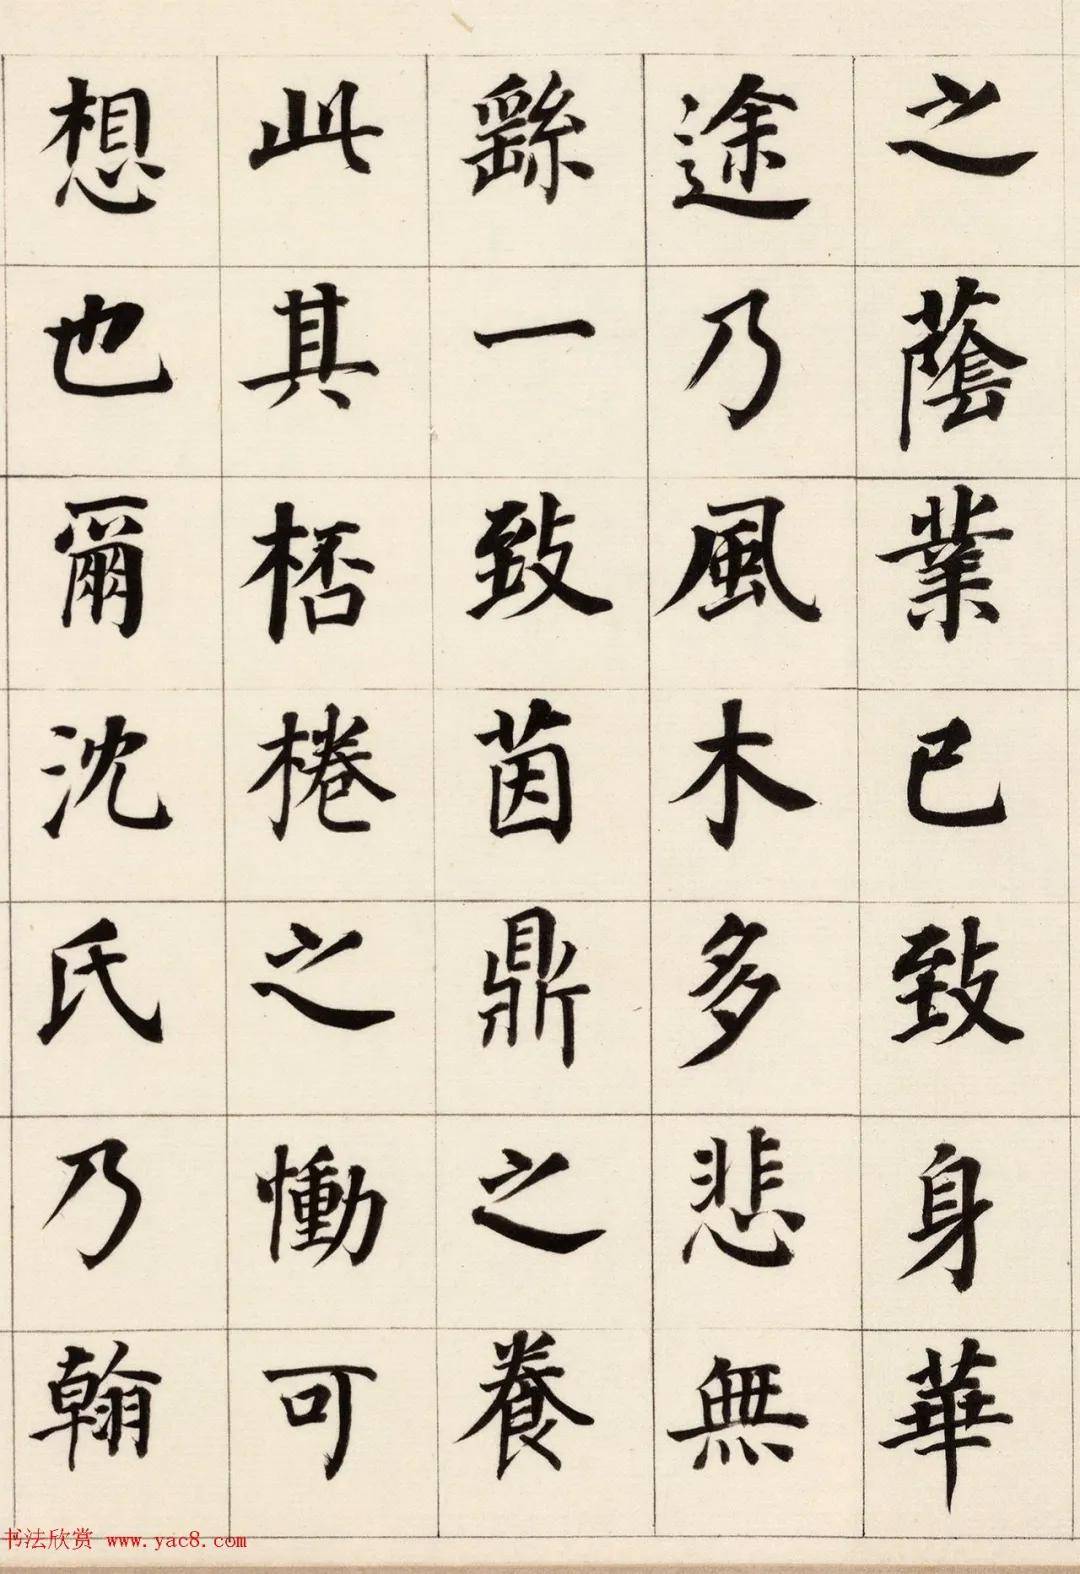 之蔭業已致身華
途乃風木多悲無
繇一致茵鼎之養
此其桮棬之慟可
想也爾沈氏乃翰
书法欣赏 www.yac8.com